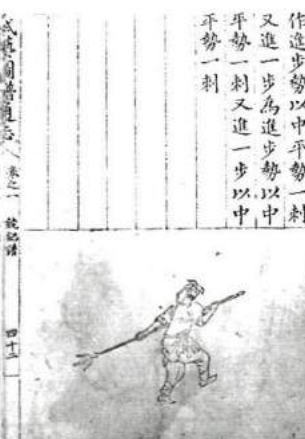 作進步勢以中平勢一刺
又進一步為進步勢以中
平勢一刺又進一步以中
平勢一刺
武藝圖譜通志 卷之一